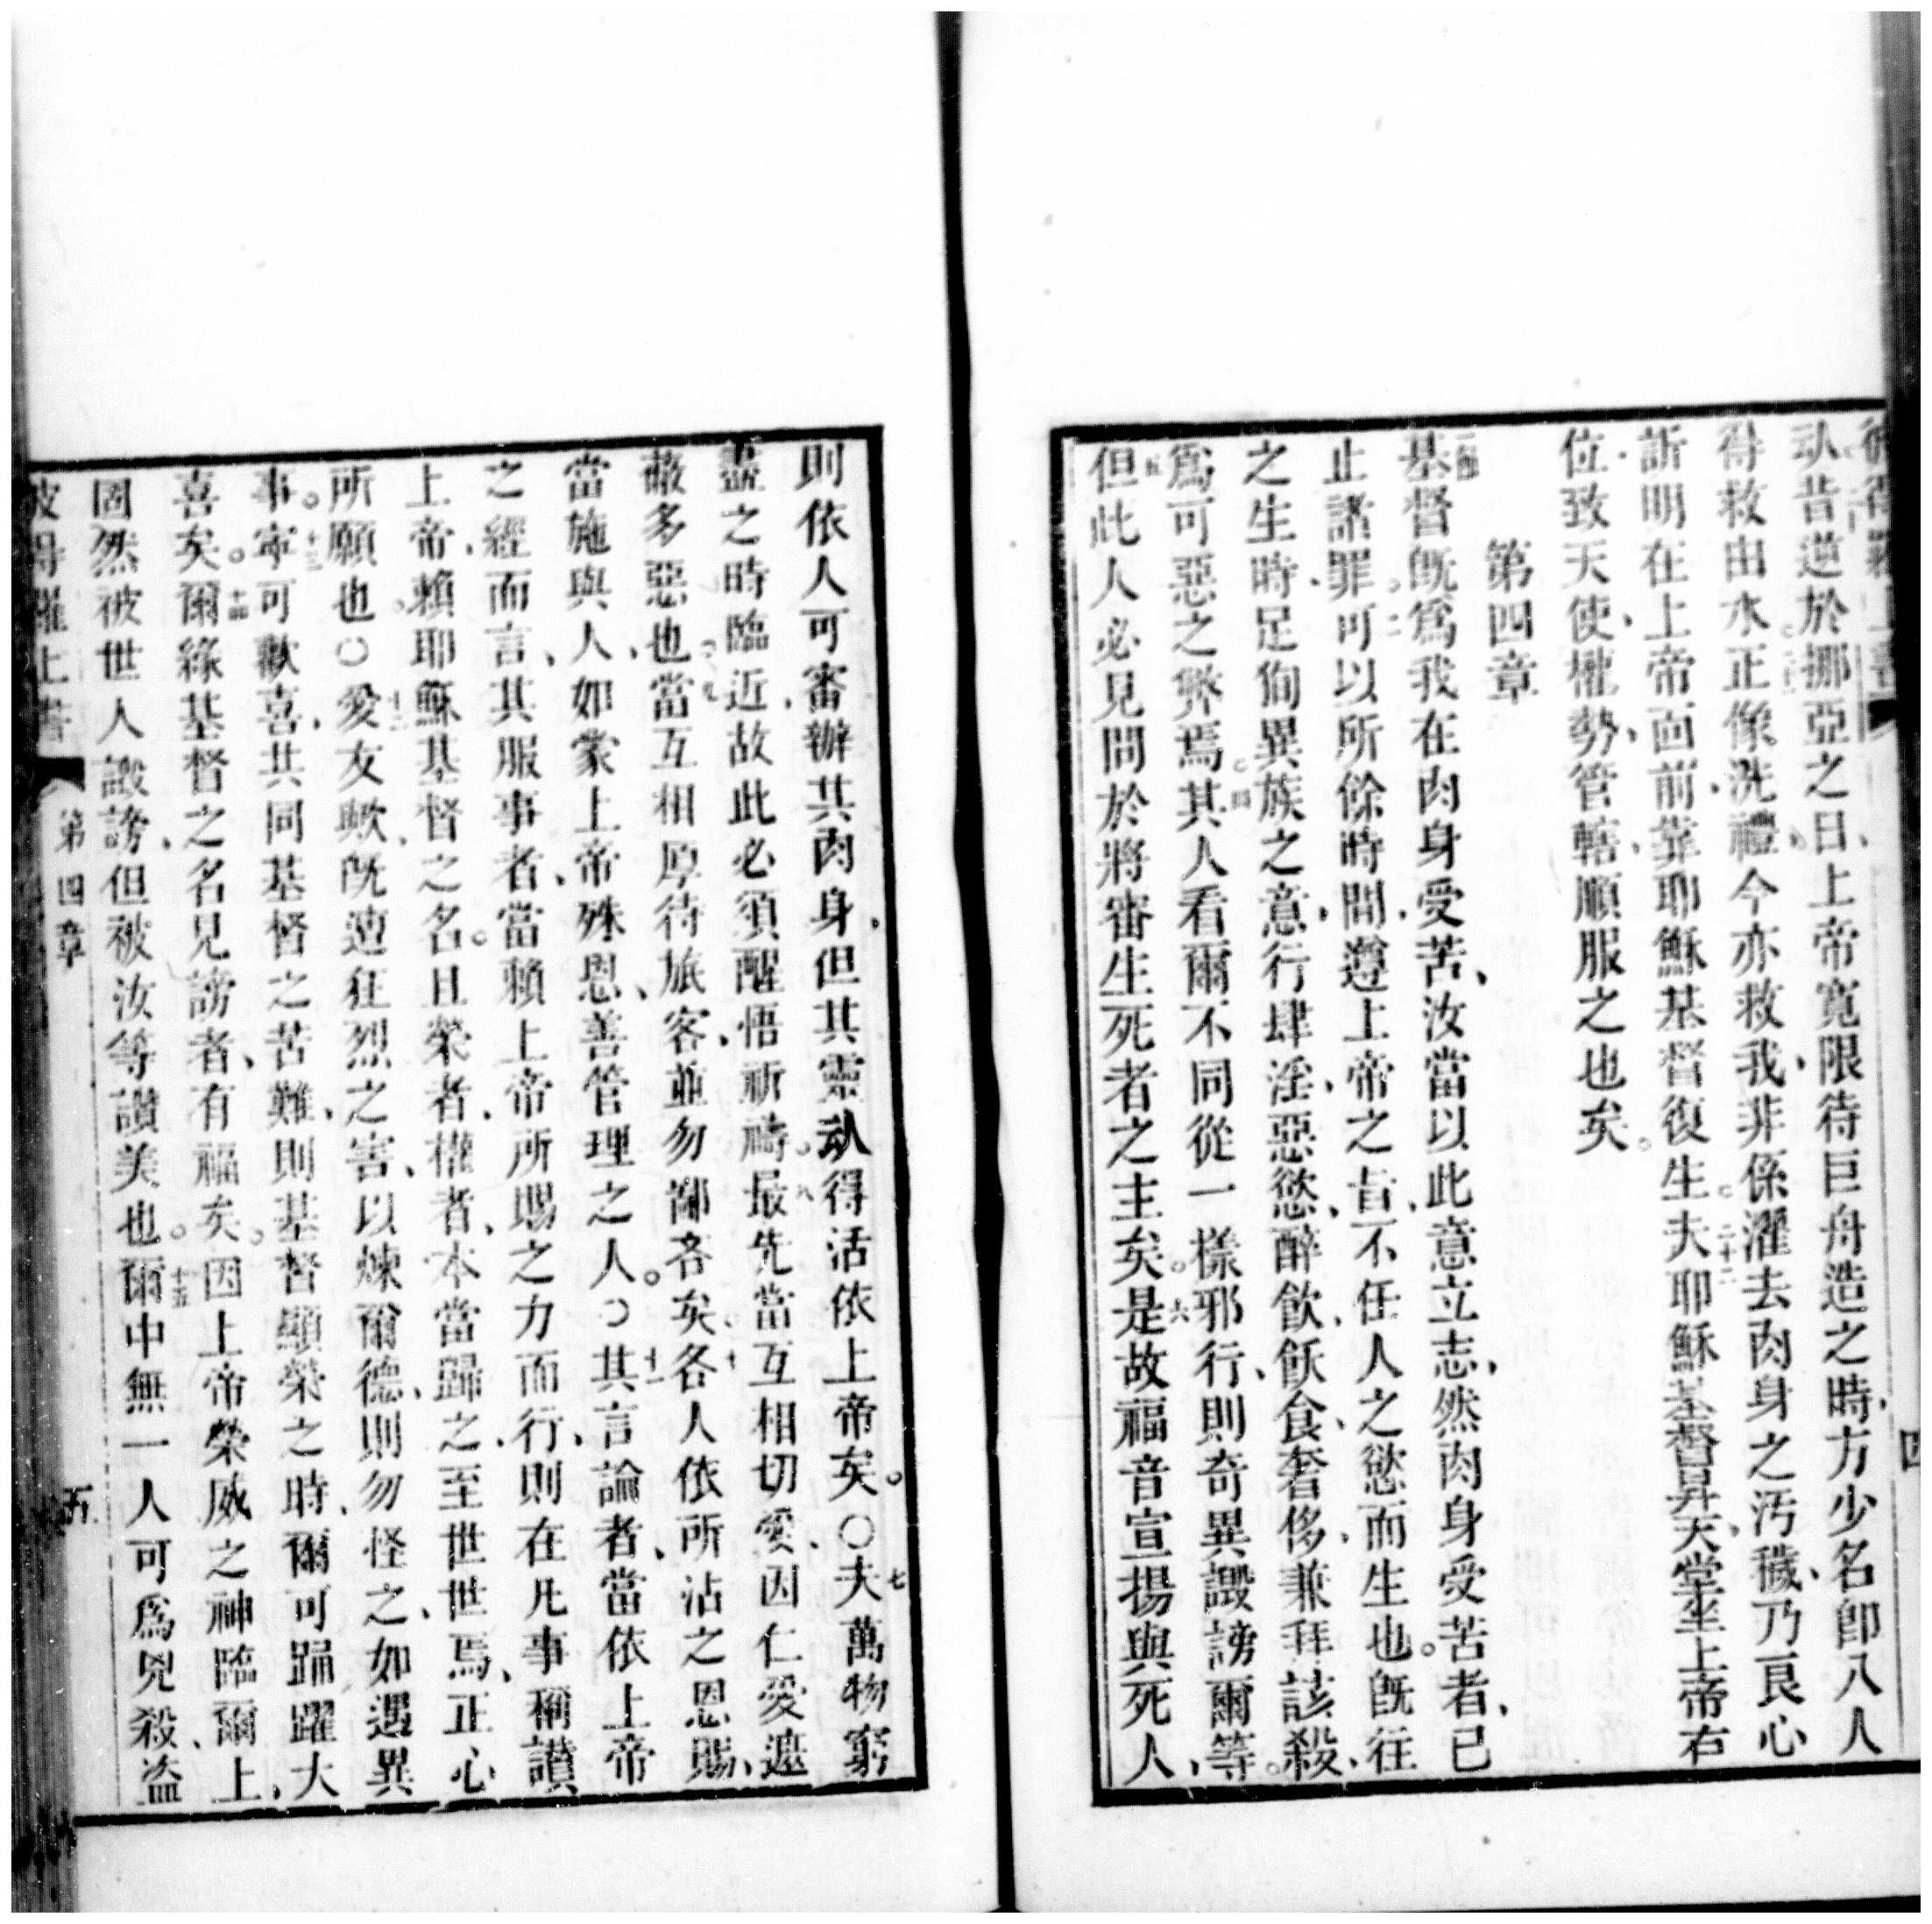 彼得羅上書
四
㕥昔逆於挪亞之日、上帝寬限待巨舟造之時、方少名卽八人
得救由水。正像、洗禮今亦救我、非係濯去肉身之汚穢、乃良心
訢明在上帝面前、靠耶穌基督復生。二十二夫耶穌基督昇天堂、坐上帝右
位、致天使、權勢、管轄、順服之也矣。
第四章
基督旣爲我在肉身受苦、汝當以此意立志、然肉身受苦者、已
止諸罪。二可以所餘時間、遵上帝之旨、不任人之慾而生也。旣往
之生時、足徇異族之意、行肆淫、惡慾、醉飮、飫食、奢侈、兼拜該殺、
爲可惡之弊焉。四其人看爾不同從一樣邪行、則奇異譭謗爾等。
五但此人必見問於將審生死者之主矣。六是故福音宣揚與死人、
則依人可審辦其肉身、但其靈㕥得活依上帝矣。○七夫萬物窮
盡之時臨近、故此必須醒悟祈禱。八最先當互相切愛、因仁愛遮
蔽多惡也。九當互相厚待旅客、並勿鄙吝矣。十各人依所沾之恩賜、
當施與人、如蒙上帝殊恩、善管理之人。○十一其言論者、當依上帝
之經而言、其服事者、當賴上帝所賜之力而行、則在凡事稱讚
上帝、賴耶穌基督之名。且榮者、權者、本當歸之、至世世焉、正心
所願也。○十二愛友歟、旣遭狂烈之害、以煉爾德、則勿怪之、如遇異
事。十三寧可歡喜、共同基督之苦難、則基督顯榮之時、爾可踊躍大
喜矣。十四爾緣基督之名見謗者、有福矣。因上帝榮威之神臨爾上、
固然被世人譭謗、但被汝等讚美也。十五爾中無一人可爲兇殺、盜
彼得羅上書
第四章
五